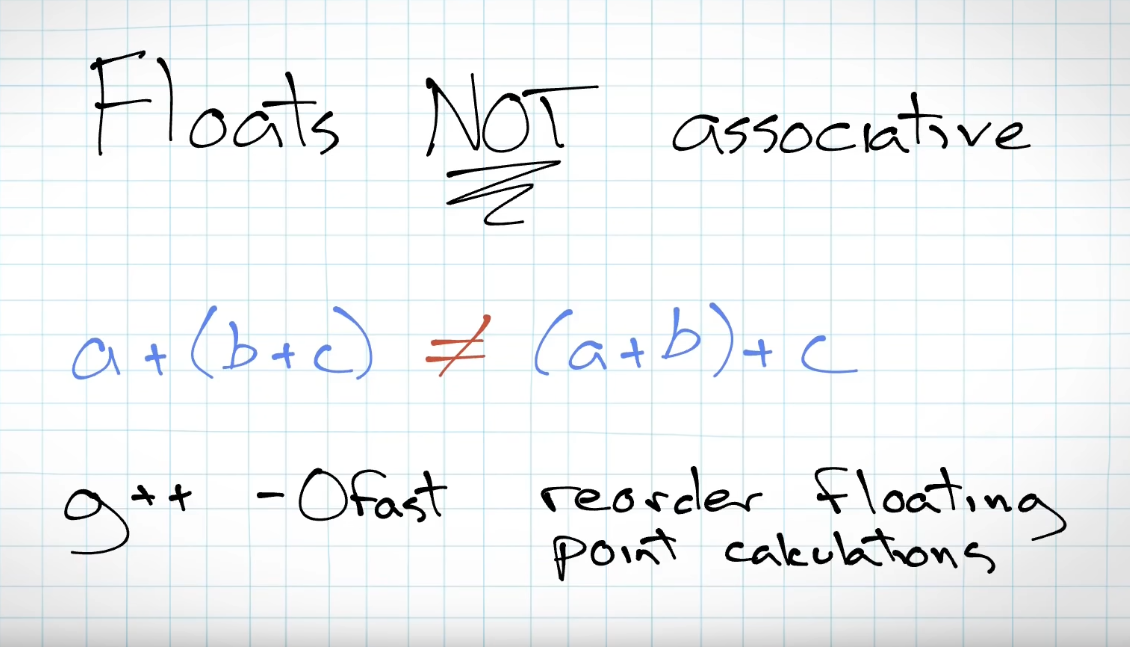 Floats NOT associative
a+(b+c) ≠ (a+b)+c
g++ -Ofast reorder floating
point calculations